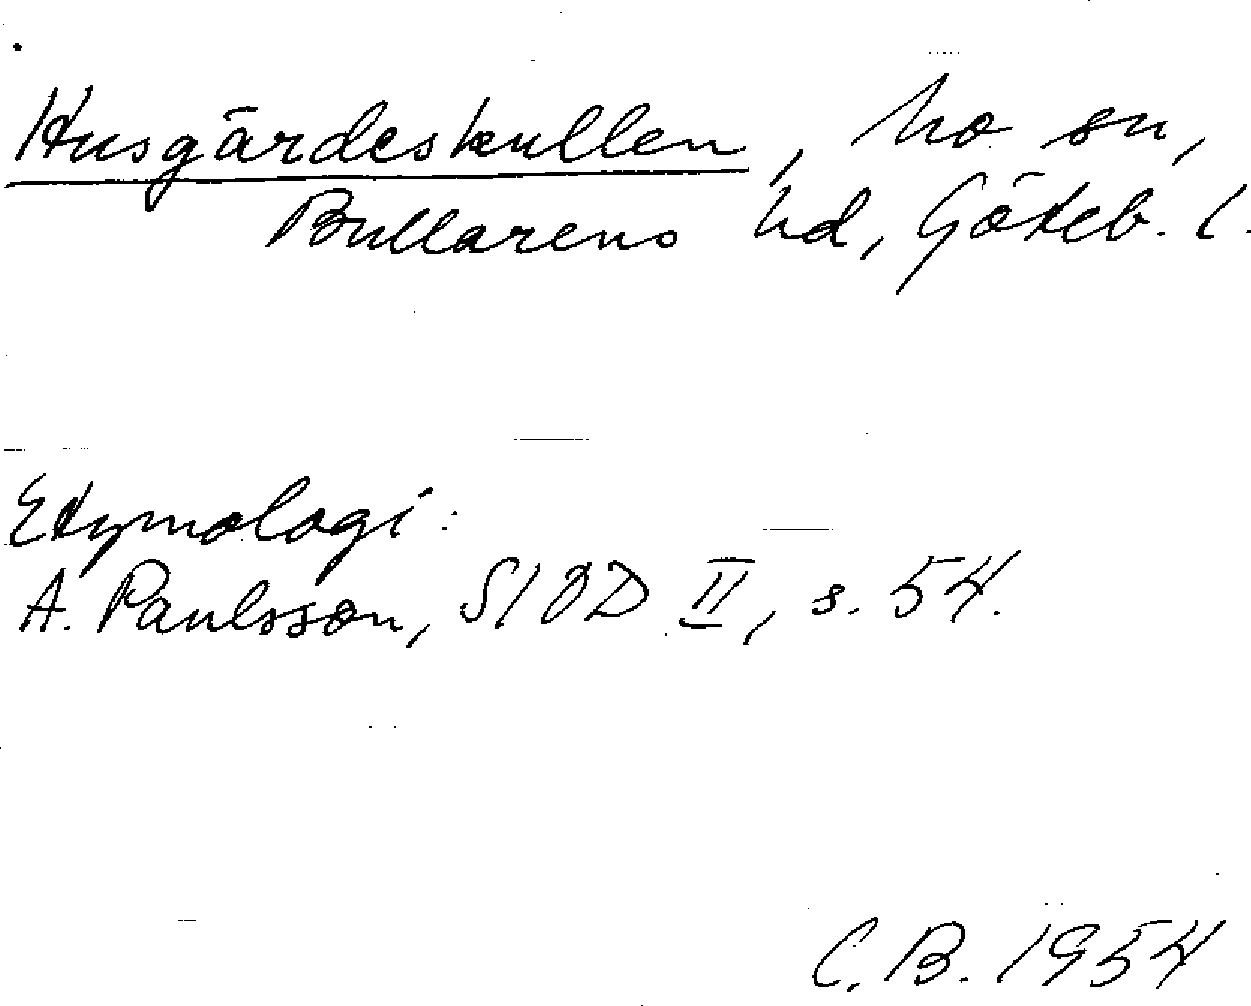 Husgärdeskullen, Mo sn,
Bullarens hd, Göteb. l.
Etymologi:
A. Paulsson, SIOD II, s. 54.
C. B. 1954